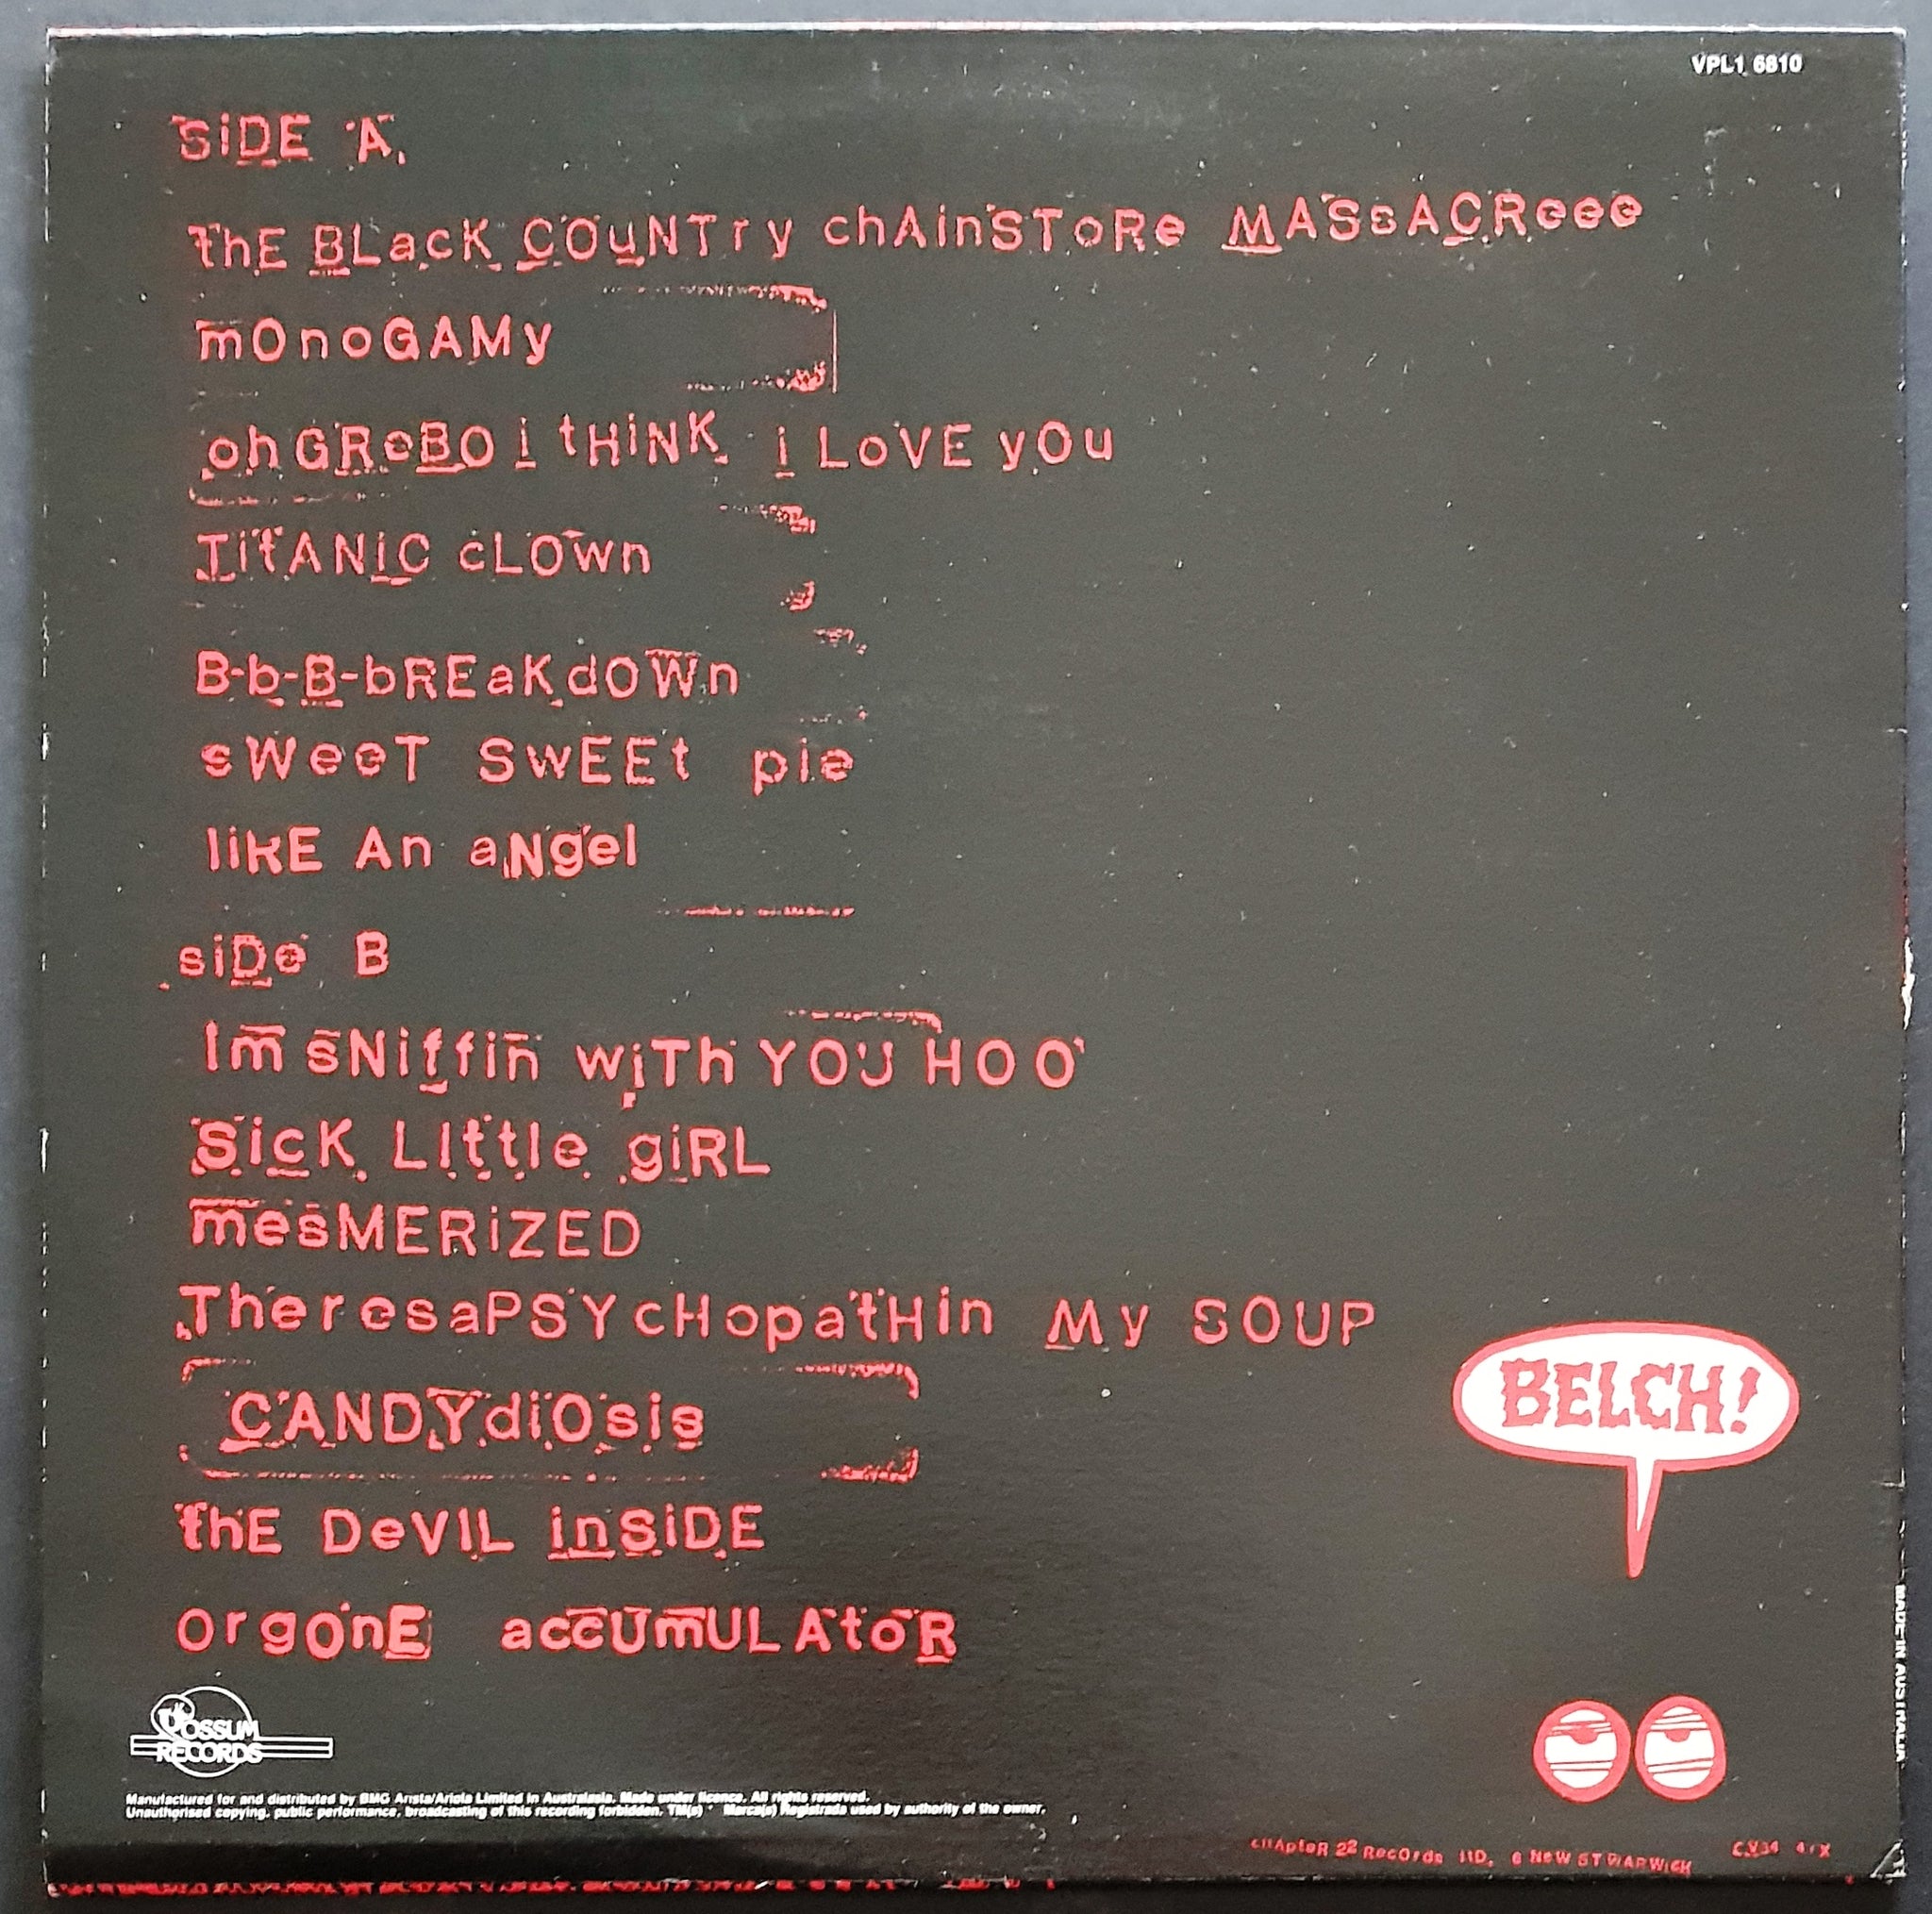 VPL1 6810
SiDE A.
thE BLacK COuNTry chAinSToRe MASsACReee
mOnoGAMy
oh GReBO I tHiNK i LoVE yOu
TitANiC cLOwn
B-b-B-bREaKdOWn
sWeeT SwEEt pie
liKE An aNgel
siDe B
Im sNiffin wiTh YOU HOO
SicK LIttle giRL
mesMERiZED
TheresaPSYcHopatHin My SOUP
CANDYdiOsis
thE DeVIL inSiDE
OrgOnE accUmULAtoR
BELCH!
POSSUM
RECORDS
Manufactured for and distributed by BMG Arista/Ariola Limited in Australasia. Made under licence. All rights reserved.
Unauthorised copying, public performance, broadcasting of this recording forbidden. TM(s) Marca(s) Registrada used by authority of the owner.
cHApteR 22 RecOrds ltD, 6 NeW ST WARWicK
MADE IN AUSTRALIA